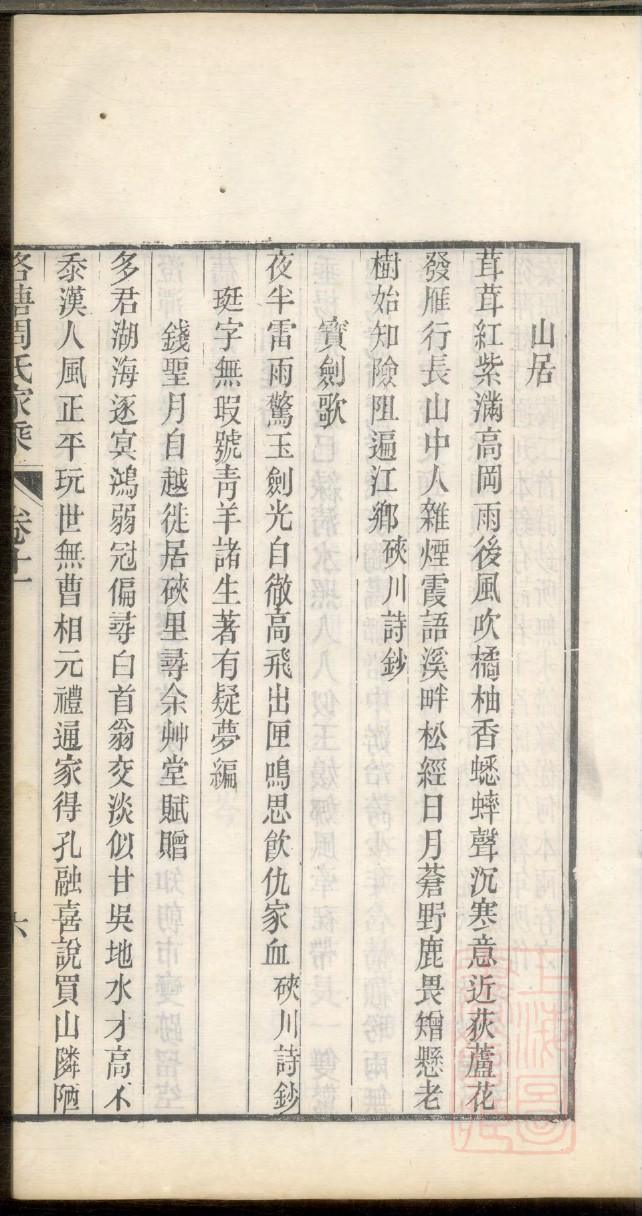 山居
茸茸紅紫滿高岡雨後風吹橘柚香蟋蟀聲沉寒意近荻蘆花
發雁行長山中人雜煙霞語溪畔松經日月蒼野鹿畏矰懸老
樹始知險阻遍江鄉 硤川詩鈔
寶劍歌
夜半雷雨驚玉劍光自徹高飛出匣鳴思飲仇家血 硤川詩鈔
珽字無瑕號靑羊諸生著有疑夢編
錢聖月自越徙居硤里尋余艸堂賦贈
多君湖海逐冥鴻弱冠偏尋白首翁交淡似甘吳地水才高不
忝漢人風正平玩世無曹相元禮通家得孔融喜說買山隣陋
洛塘周氏家乘
卷十一
六